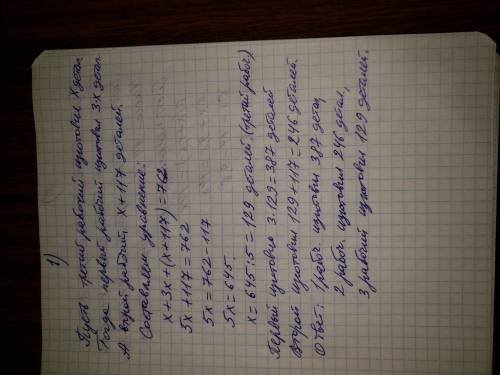 1)
Пусть третий рабочий изготовил x детал.
Тогда первый рабочий изготовил 3x детал.
А второй рабочий x + 117 деталей.
Составляем уравнение.
x+3x+(x+117)=762
5x+117=762
5x=762-117
5x=645
x=645:5=129 деталей (третий рабоч)
Первый изготовил 3·129=387 деталей
Второй изготовил 129+117=246 деталей.
Ответ: 1 рабоч. изготовил 387 детал,
2 рабоч. изготовил 246 детал,
3 рабочий изготовил 129 деталей.